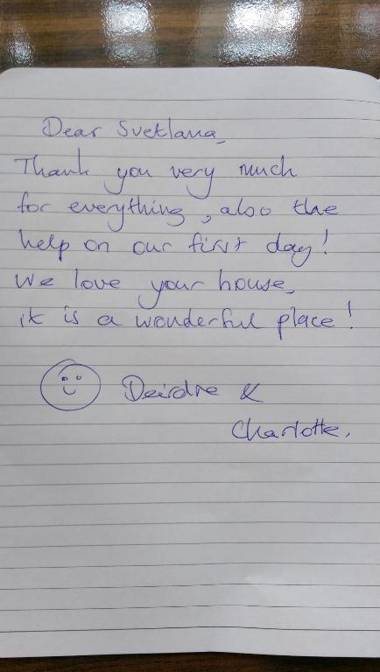 Dear Svetlana,
Thank you very much
for everything, also the
help on our first day!
We love your house,
it is a wonderful place!
Deirdre &
Charlotte.